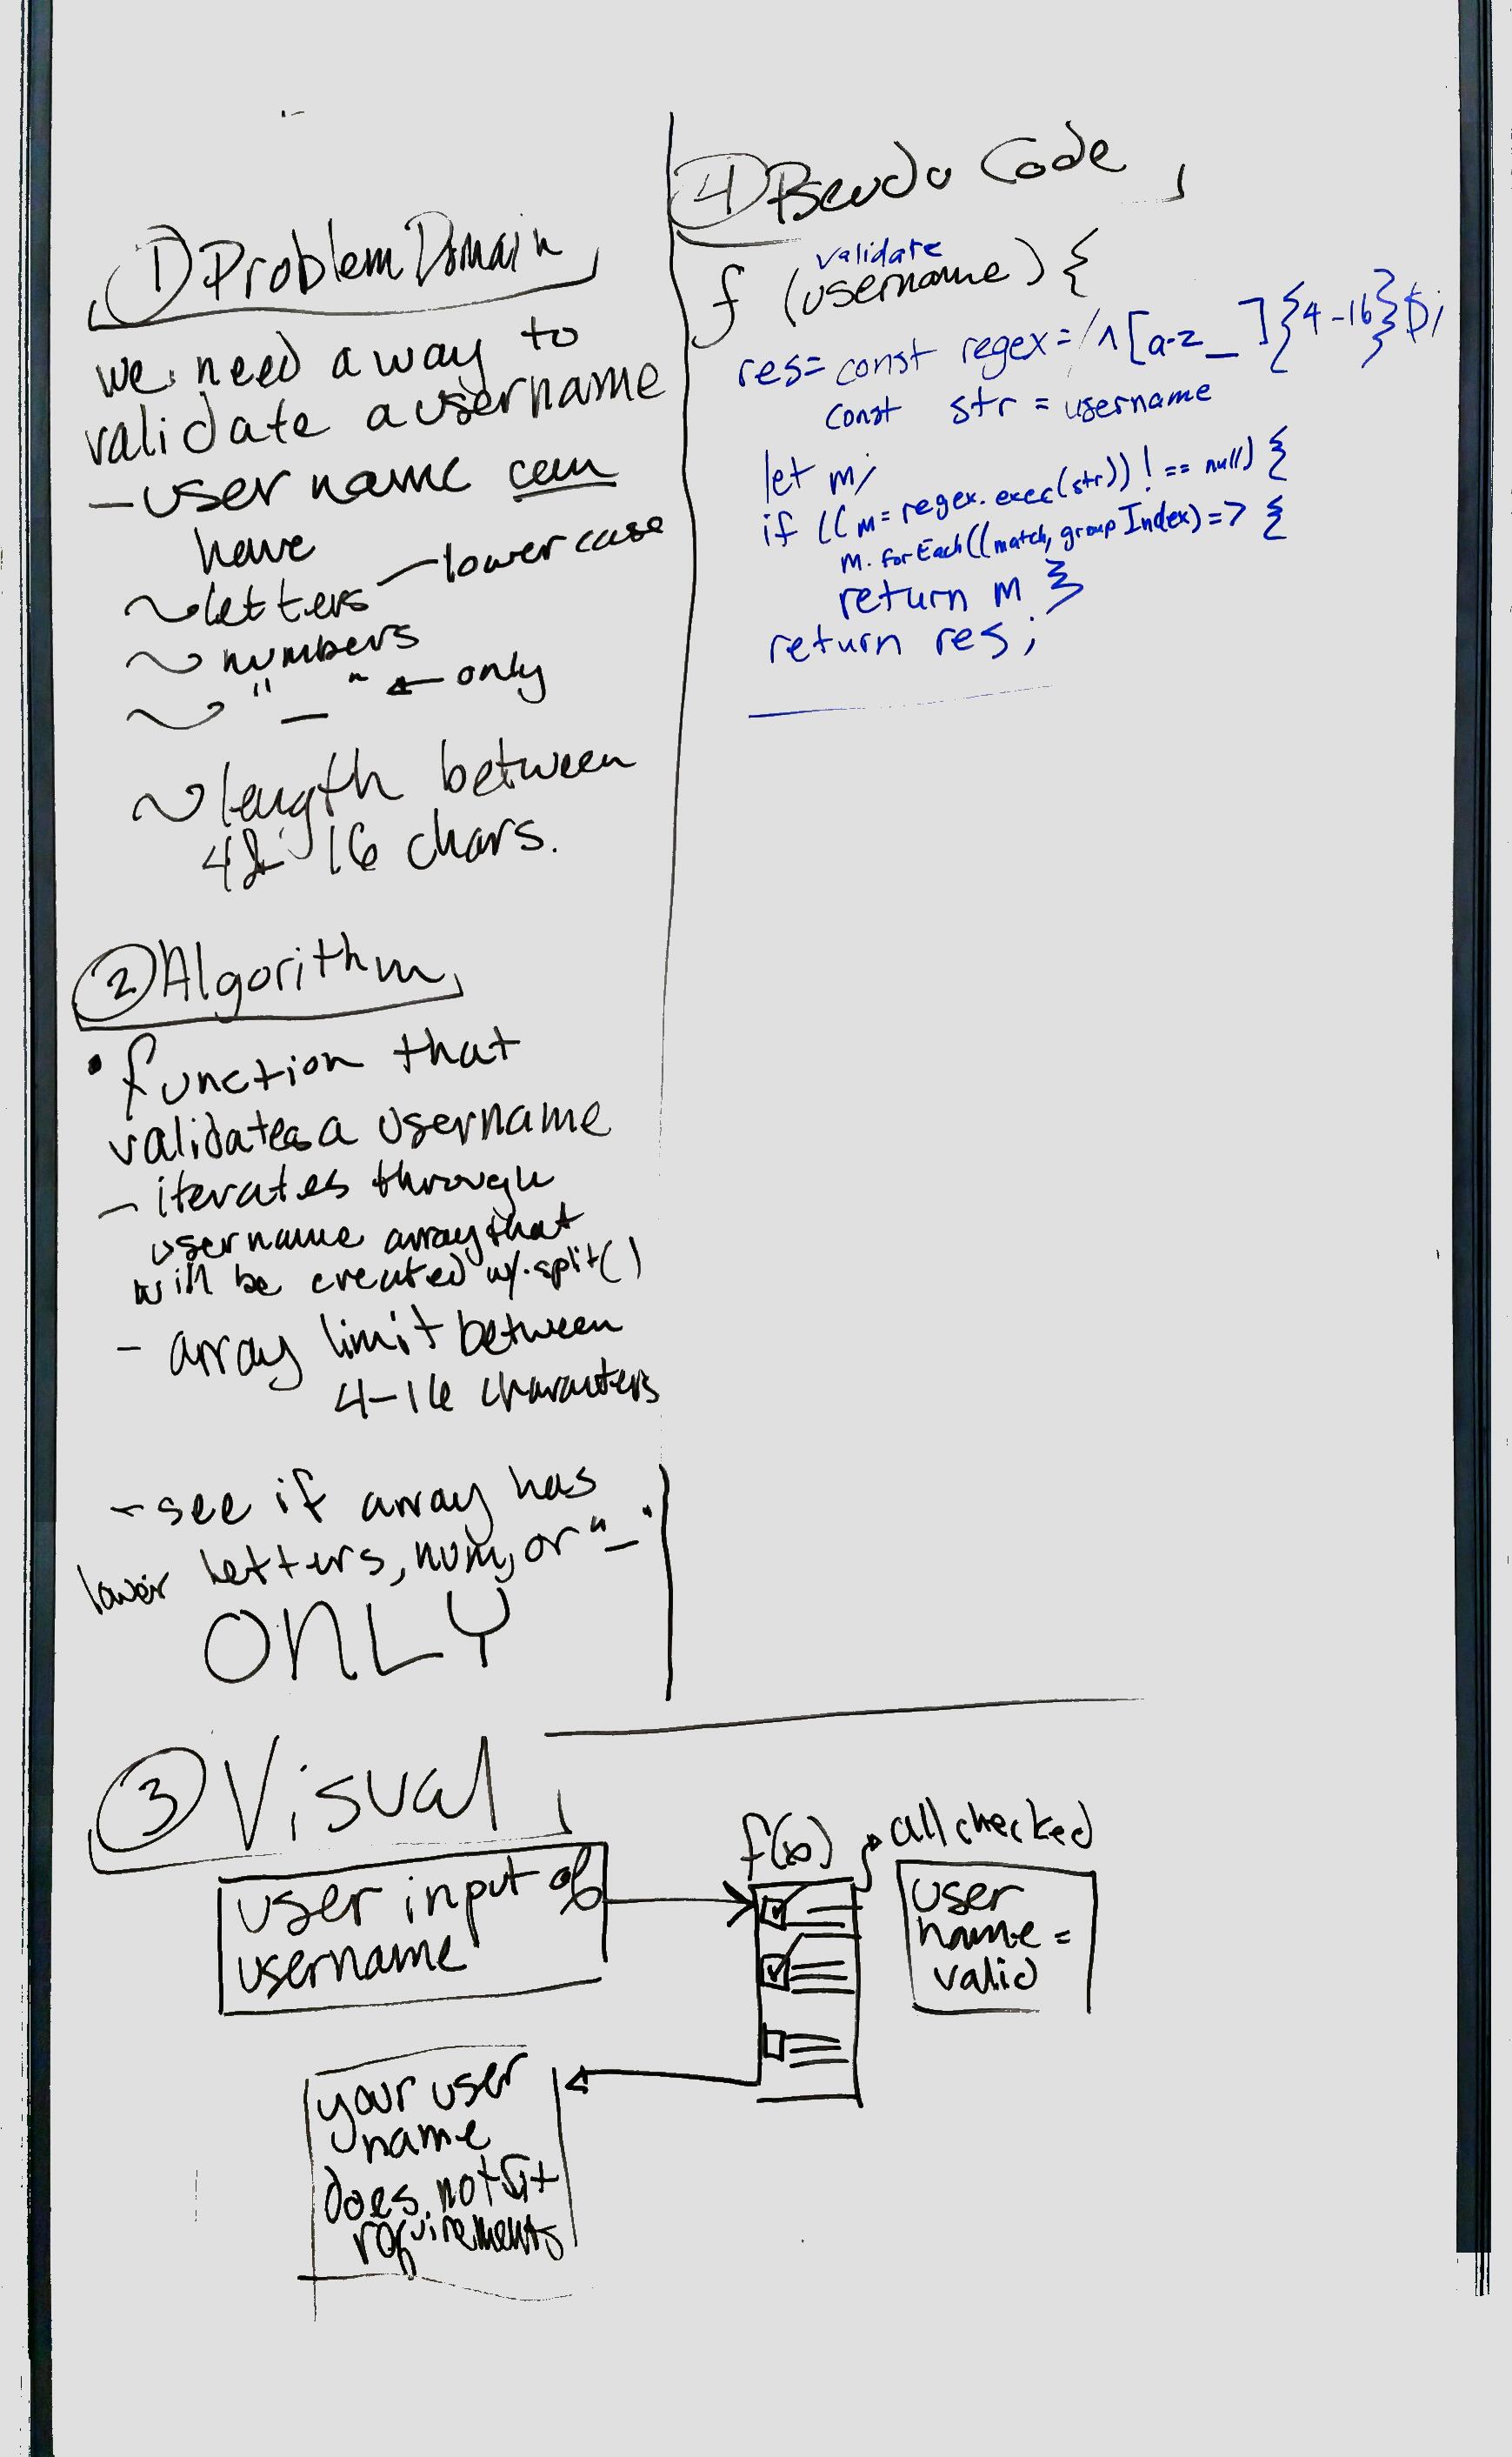 ① Problem Domain
we need a way to
validate a username
- user name can
have
~ letters - lower case
~ numbers
~ "_" ← only
~ length between
4 & 16 chars.
② Algorithm
• function that
validates a username
- iterates through
username array that
will be created w/ .split()
- array limit between
4-16 characters
- see if array has
lower letters, num, or "_"
ONLY
③ Visual
user input of
username
f(x)
all checked
user
name =
valid
your user
name
does not fit
requirements
④ Pseudo Code
validate
f (username) {
res= const regex = /^[a-z_]{4-16}$;
const str = username
let m;
if ((m = regex.exec(str)) ! == null) {
m.forEach((match, groupIndex) => {
return m }
return res;